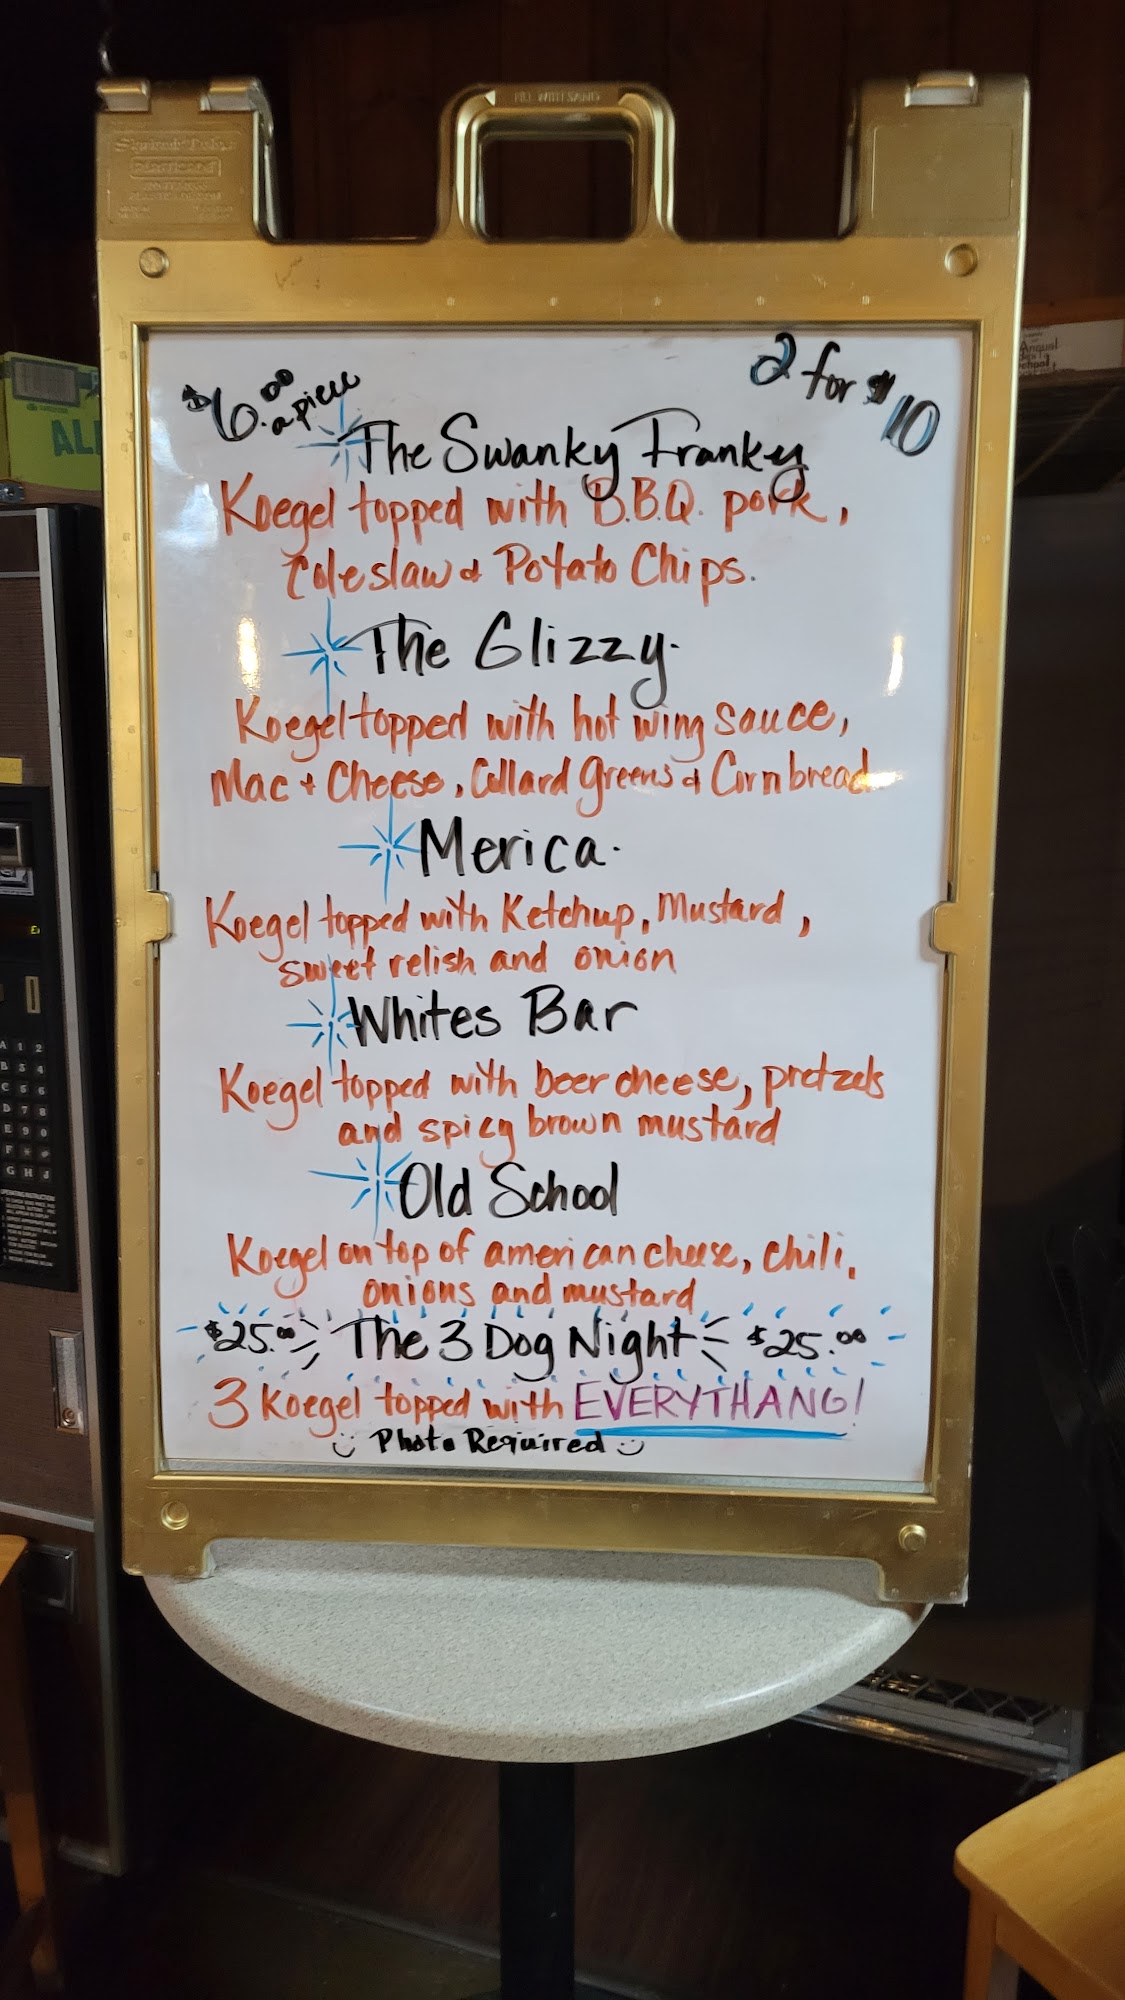 $6.00 apiece
2 for $10
The Swanky Franky
Koegel topped with B.B.Q. pork,
Coleslaw & Potato Chips.
The Glizzy.
Koegel topped with hot wing sauce,
Mac + Cheese, Collard Greens & Corn bread
Merica.
Koegel topped with Ketchup, Mustard,
sweet relish and onion
Whites Bar
Koegel topped with beer cheese, pretzels
and spicy brown mustard
Old School
Koegel on top of american cheese, chili,
onions and mustard
$25.00 The 3 Dog Night $25.00
3 Koegel topped with EVERYTHANG!
Photo Required
ALL
A 1 2
B 3 4
C 5 6
D 7 8
E 9 0
F *
G H
OPERATING INSTRUCTIONS